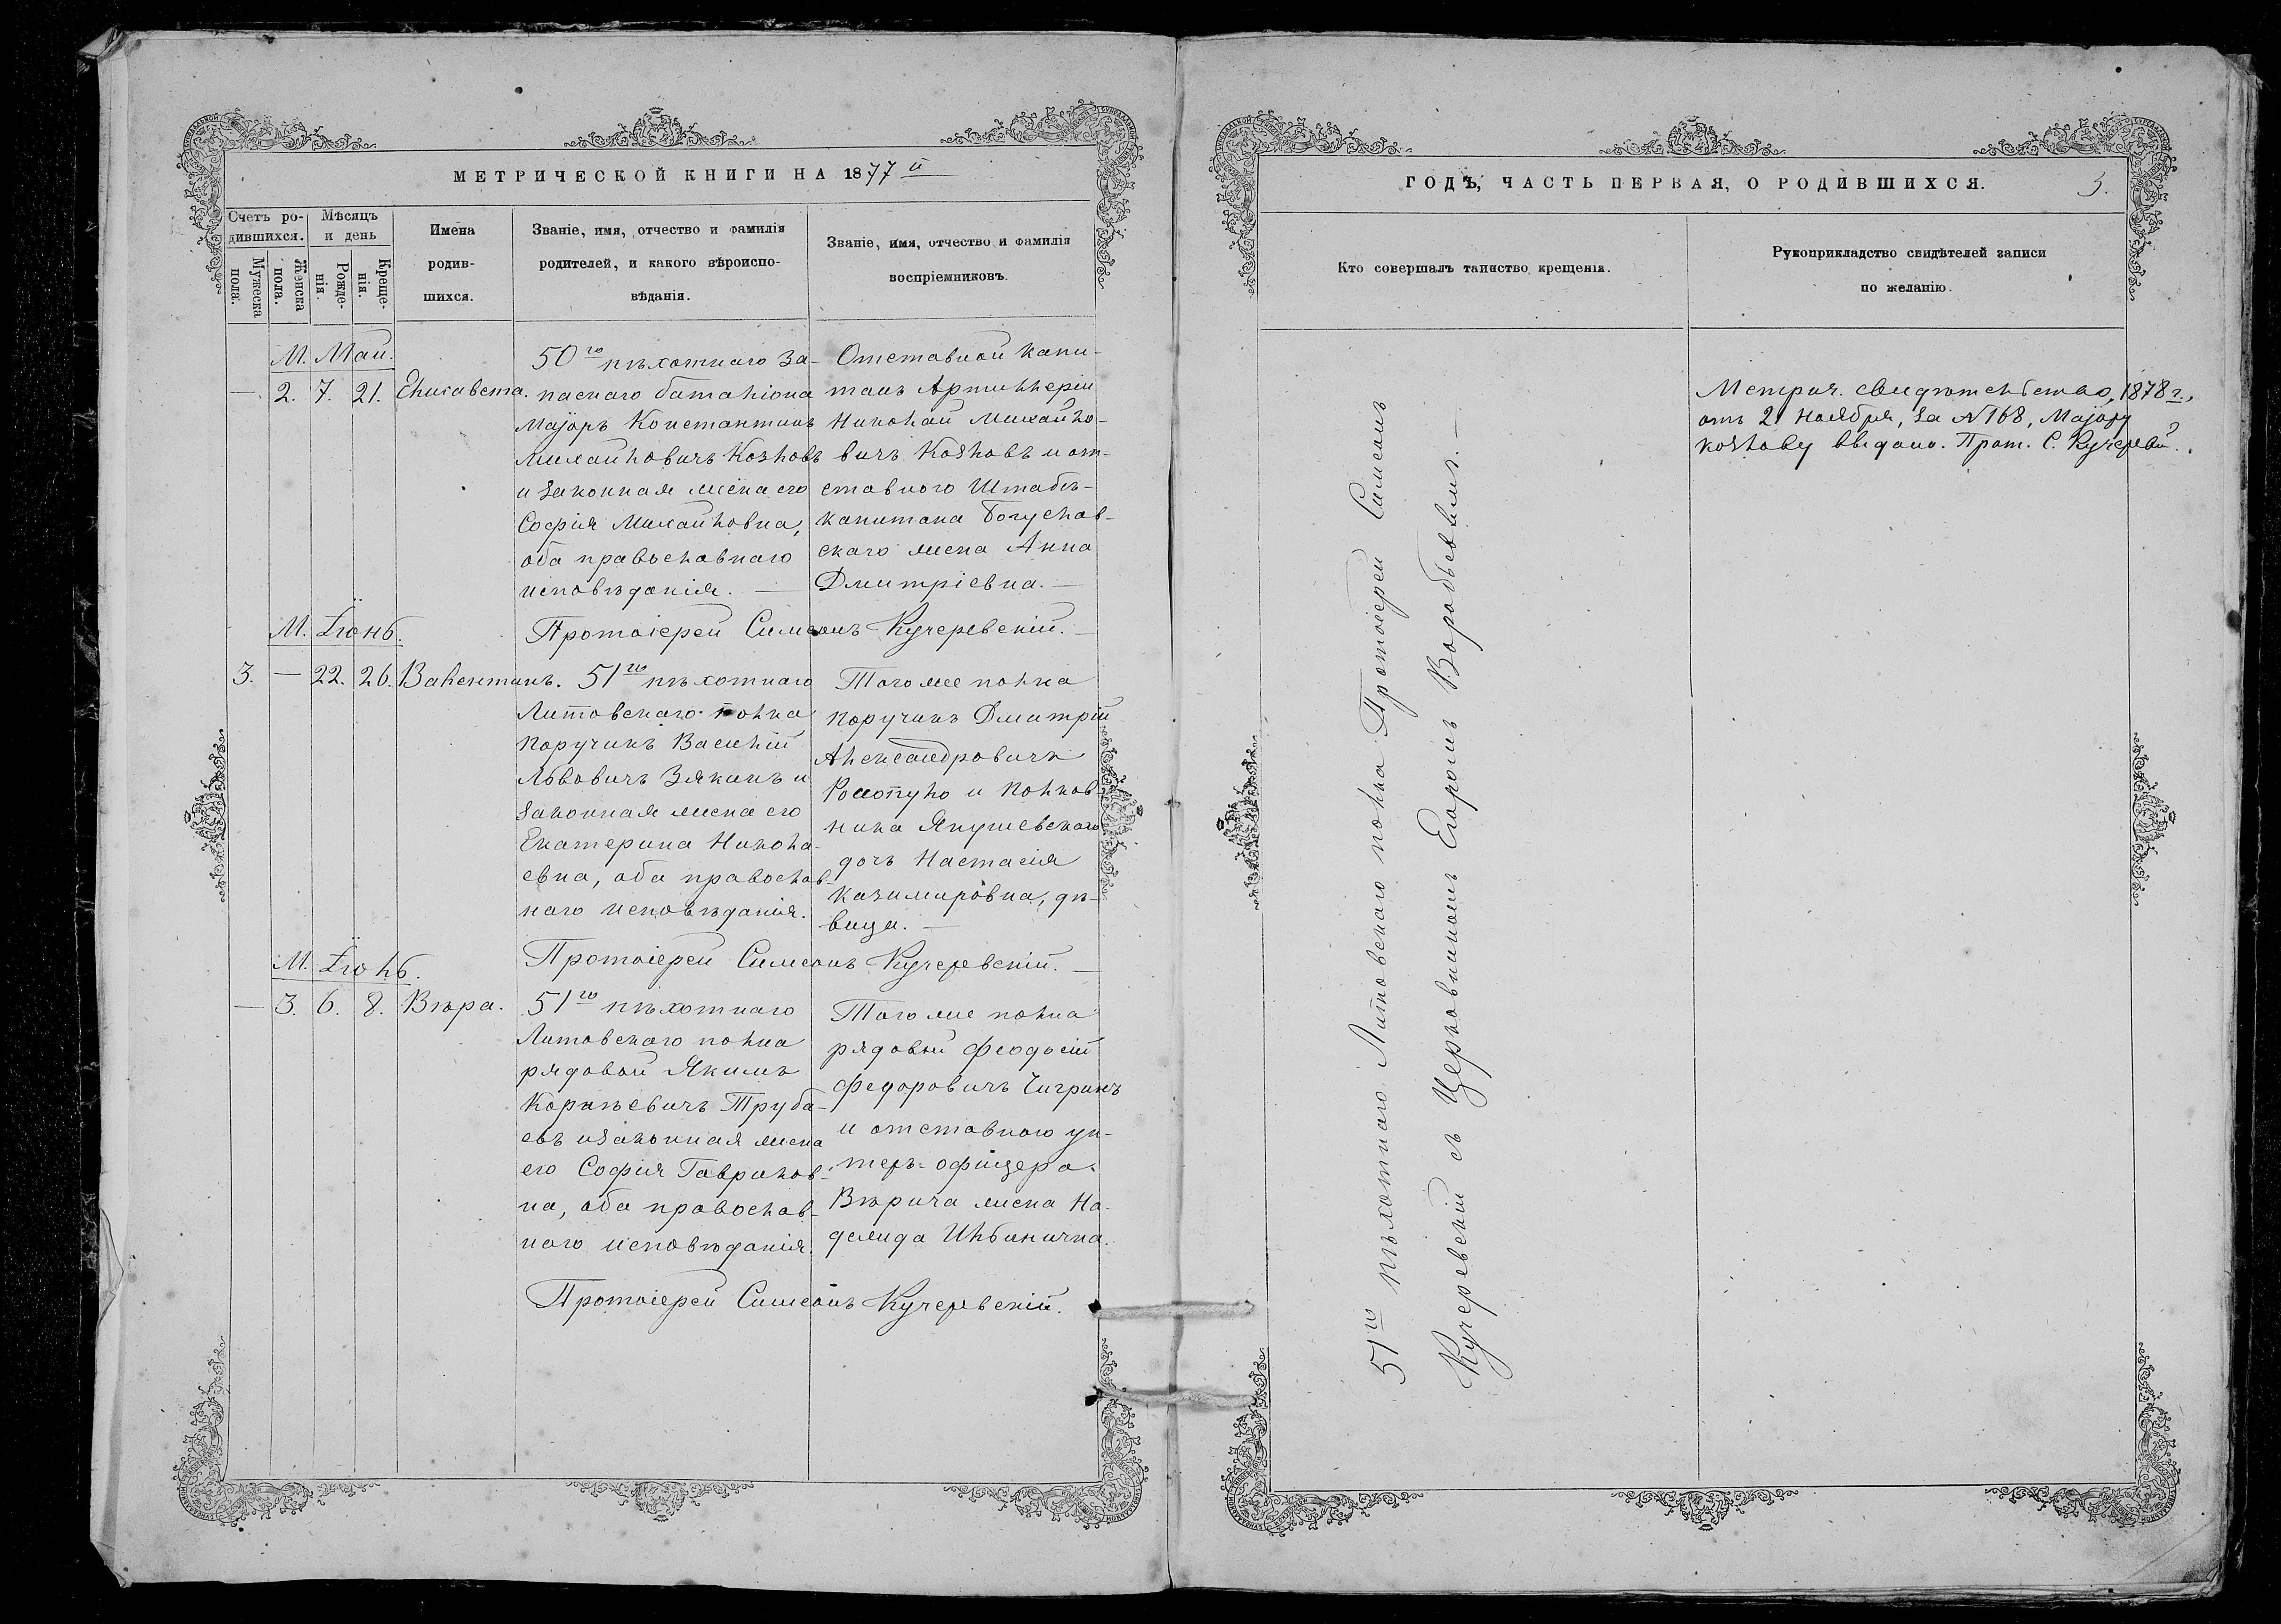 МЕТРИЧЕСКОЙ КНИГИ НА 1877й
Счетъ ро-
дившихся.
Мѣсяцъ
и день
Мужеска
пола.
Женска
пола.
Рожде-
нія.
Креще-
нія.
Имена
родив-
шихся.
Званіе, имя, отчество и фамилія
родителей, и какого вѣроиспо-
вѣданія.
Званіе, имя, отчество и фамилія
воспріемниковъ.
М. Май.
— 2. 7. 21. Елисавета.
50го пѣхотнаго за-
паснаго баталіона
Маjоръ Константинъ
Михайловичъ Козловъ
и законная жена его
Софія Михайловна,
оба православнаго
исповѣданія. —
Отставной капи-
танъ Артиллеріи
Николай Михайло-
вичъ Козловъ и от-
ставного Штабсъ-
капитана Богуслав-
скаго жена Анна
Дмитріевна. —
Протоіерей Симеонъ Кучеревскій. —
М. Іюнь.
3. — 22. 26. Валентинъ.
51го пѣхотнаго
Литовскаго полка
поручикъ Василій
Львовичъ Зякинъ и
законная жена его
Екатерина Никола-
евна, оба православ-
наго исповѣданія.
Того же полка
поручикъ Дмитрій
Александровичъ
и Полков-
ника Янушевскаго
дочь Настасія
Казимировна, дѣ-
вица. —
Протоіерей Симеонъ Кучеревскій. —
М. Іюль.
— 3. 6. 8. Вѣра.
51го пѣхотнаго
Литовскаго полка
рядовой Якимъ
Корнѣевичъ Труба-
евъ и законная жена
его Софія Гаврилов-
на, оба православ-
наго исповѣданія.
Того же полка
рядовой Феодосій
Федоровичъ Чигринъ
и отставного ун-
теръ-офицера
Вѣрича жена На-
дежда Ильинична.
Протоіерей Симеонъ Кучеревскій.
ГОДЪ, ЧАСТЬ ПЕРВАЯ, О РОДИВШИХСЯ.
3.
Кто совершалъ таинство крещенія.
Рукоприкладство свидѣтелей записи
по желанію.
51го пѣхотнаго Литовскаго полка Протоіерей Симеонъ
Кучеревскій съ Церковникомъ Егоромъ Воробьевымъ. —
Метрич. свидѣтельство, 1878 г.,
отъ 21 Ноября, за № 168, Маjору
Козлову выдано. Прот. С. Кучеревскій.